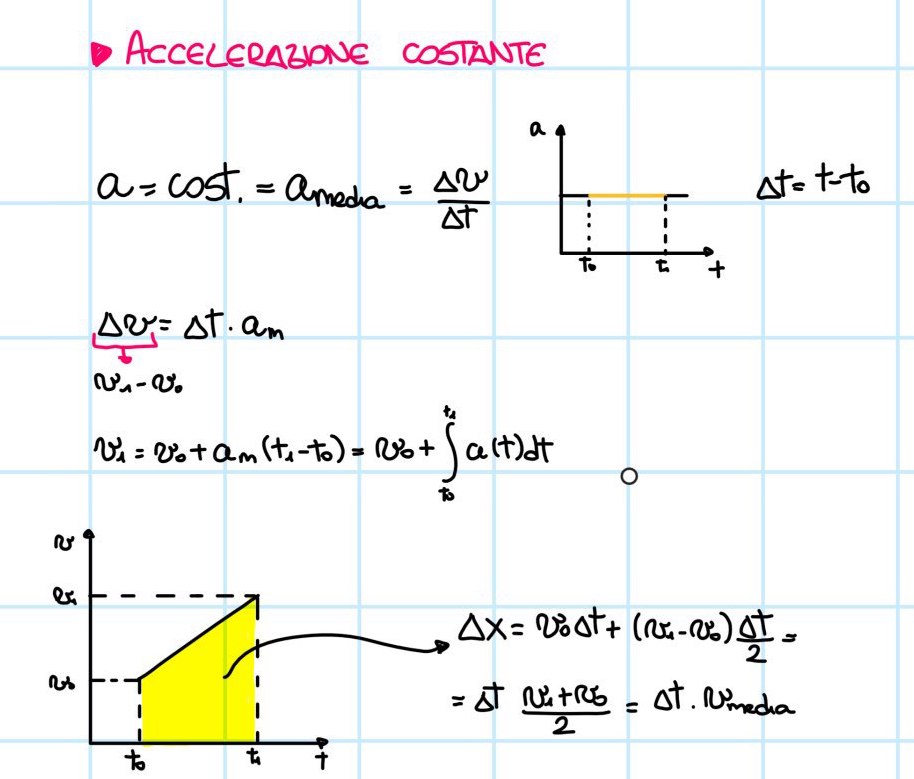 ▶ ACCELERAZIONE COSTANTE
a = cost. = a_media = Δv/Δt
a
t₀ t₁ t
Δt = t-t₀
Δv = Δt · a_m
v₁ - v₀
v₁ = v₀ + a_m (t₁-t₀) = v₀ + ∫_{t₀}^{t₁} a(t)dt
v
v₁
v₀
t₀ t₁ t
Δx = v₀Δt + (v₁-v₀) Δt/2 =
= Δt (v₁+v₀)/2 = Δt · v_media